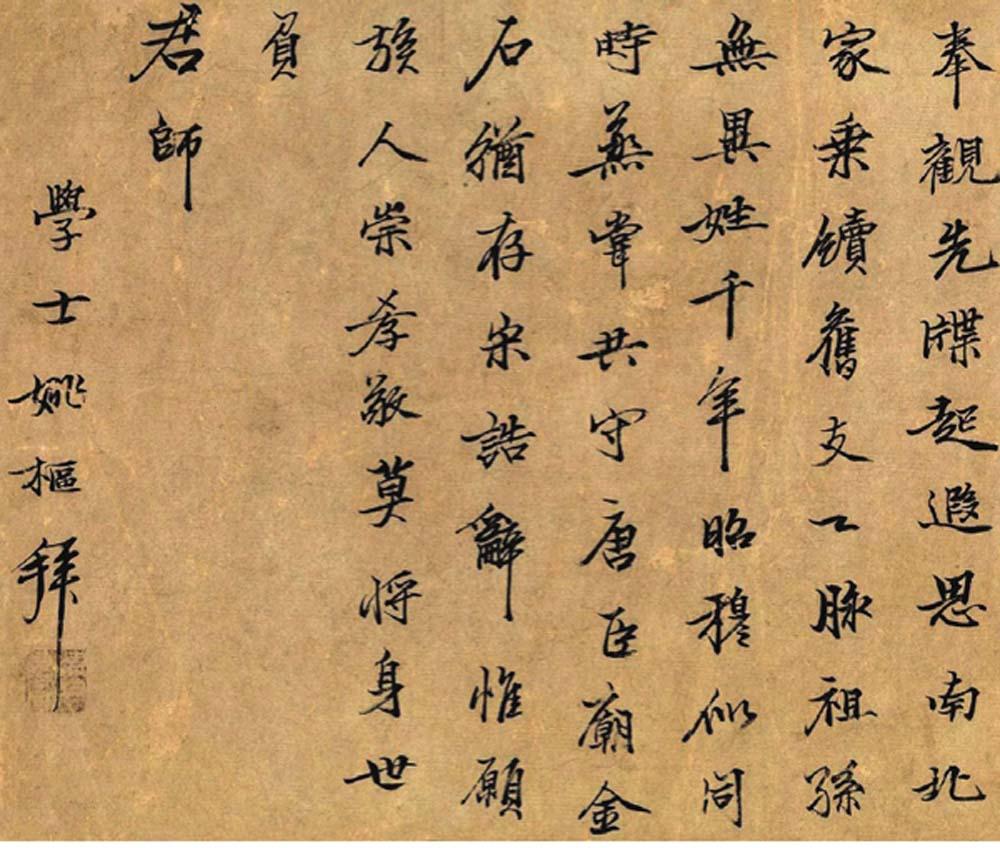 奉觀先牒起遐思南北
家乘續舊支一脉祖孫
無異姓千年昭穆似同
時蒸甞共守唐臣廟金
石猶存宋誥辭惟願
族人崇孝敬莫將身世
負
君師
學士姚樞拜